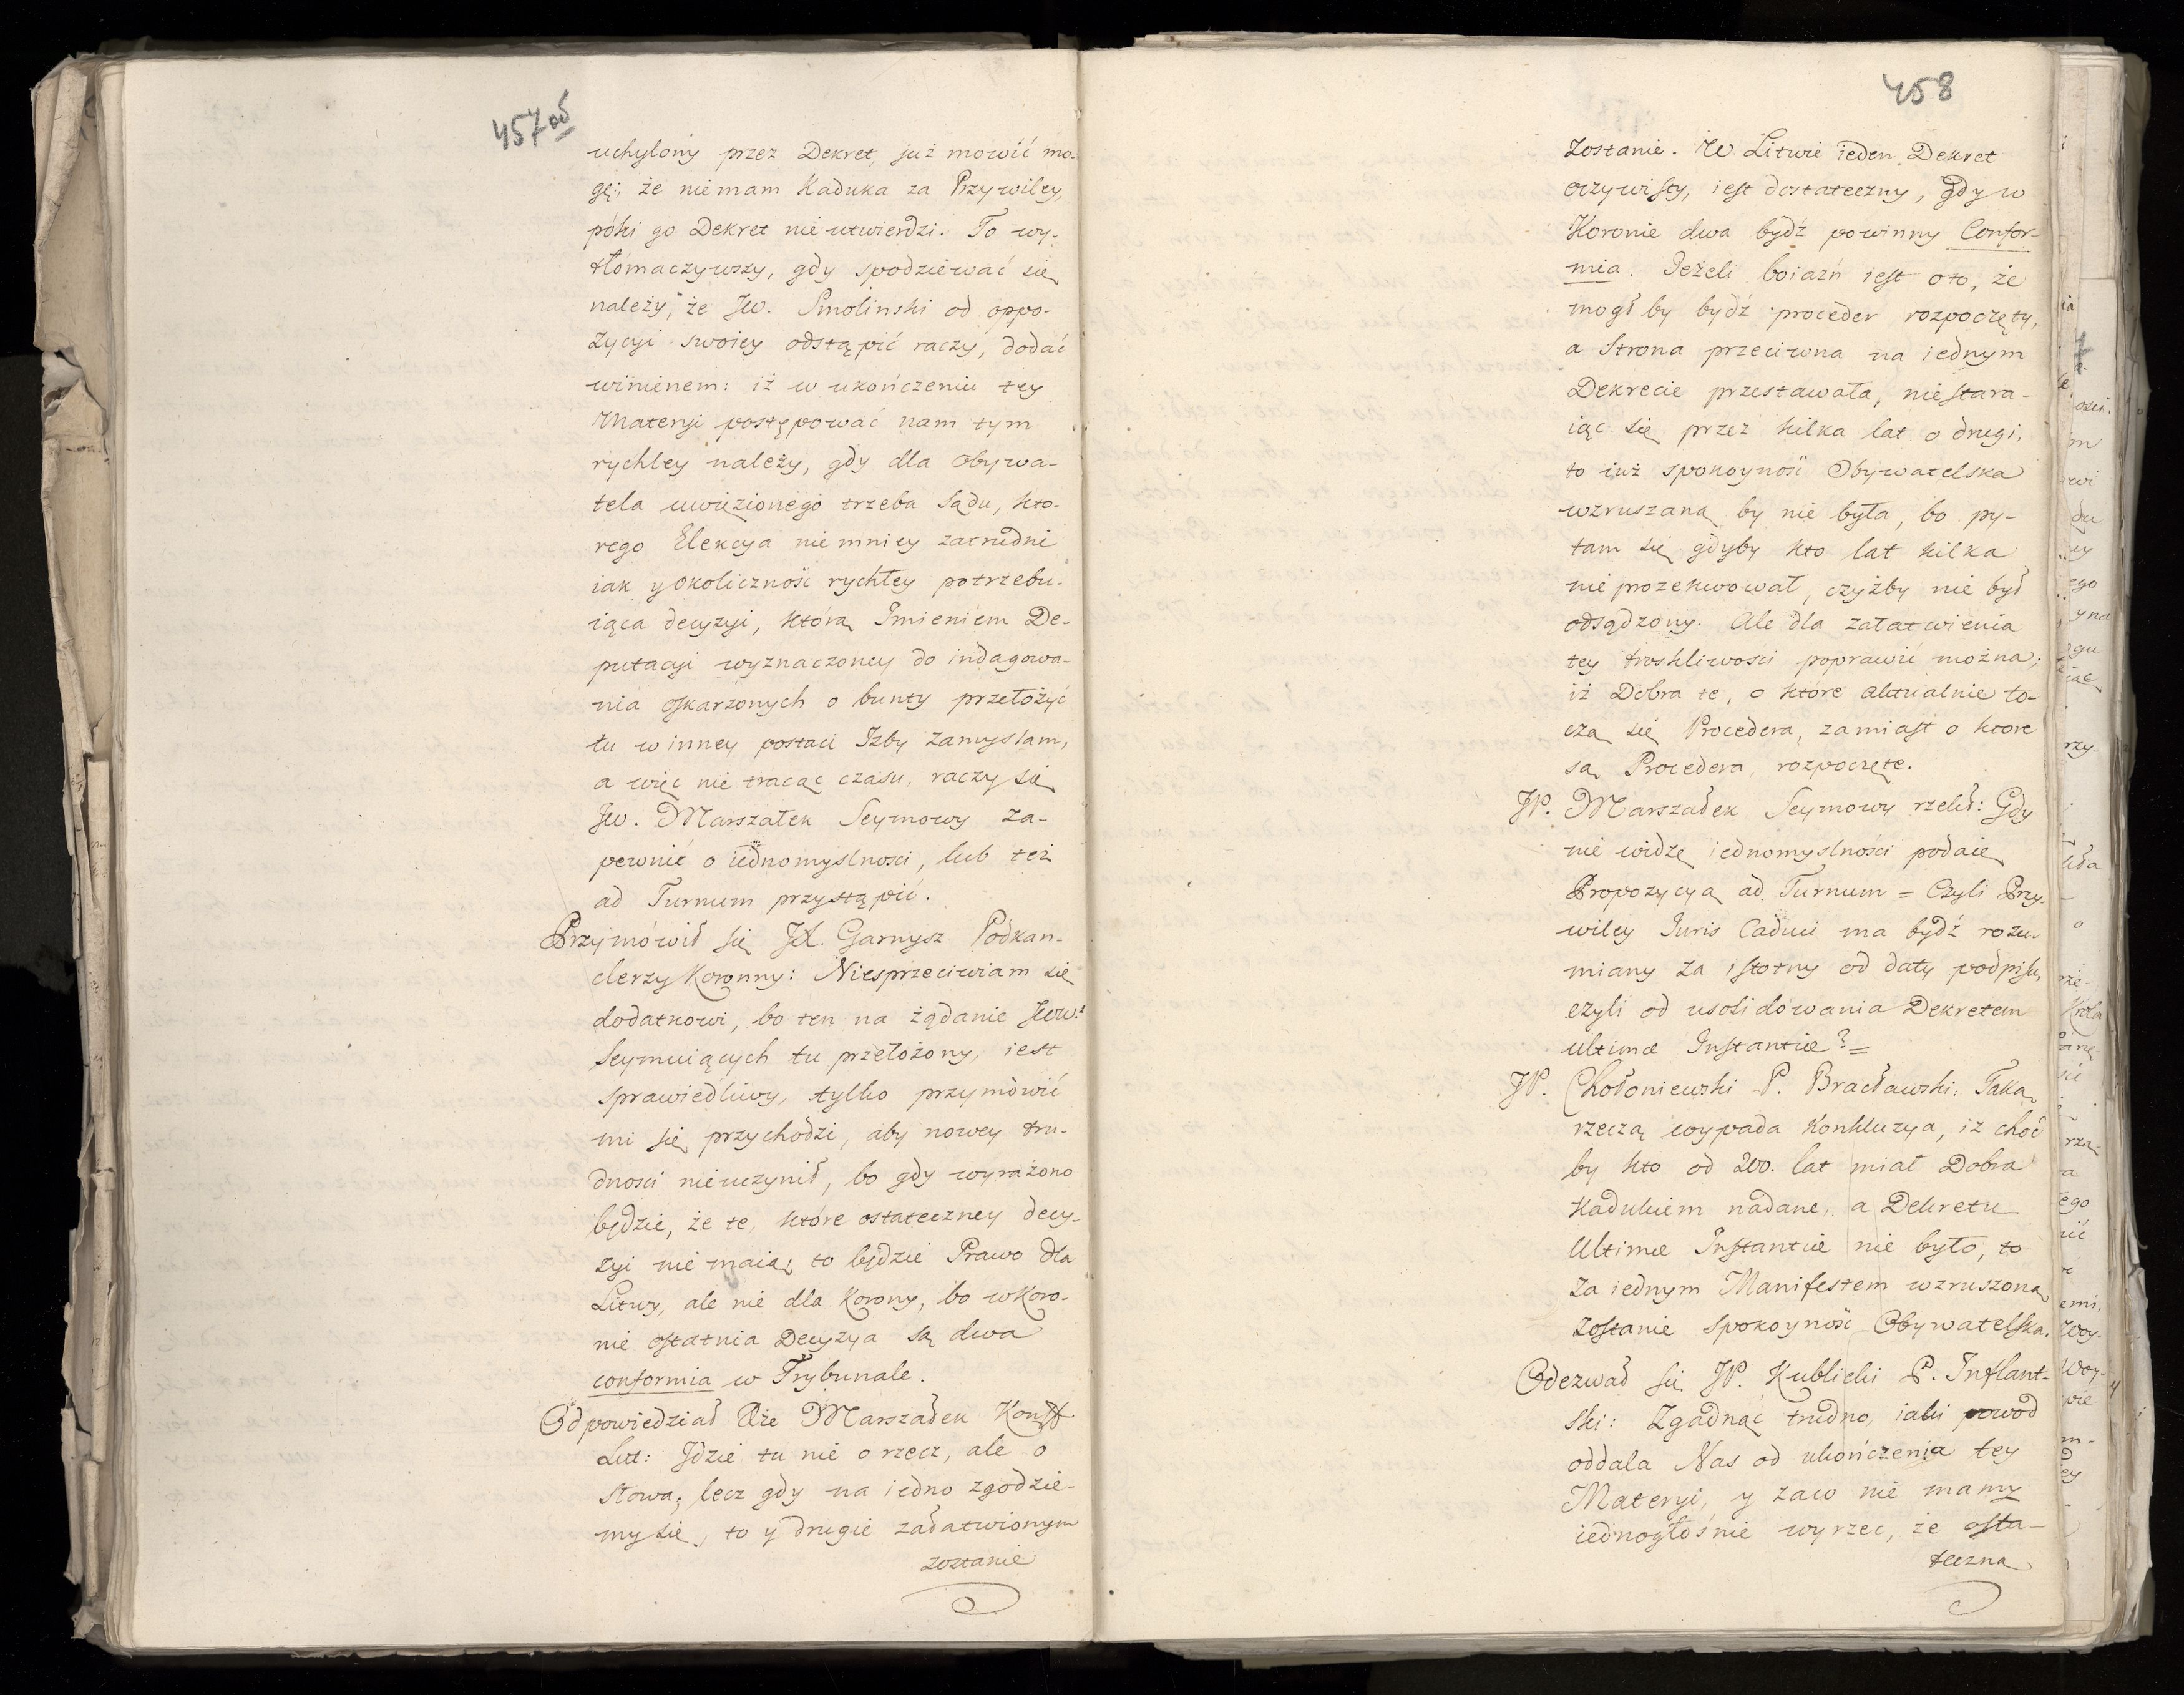 457 об
uchylony przez Dekret, już mowić mo-
gę; że niemam Kaduka za Przywiley,
póki go Dekret nie utwierdzi. To wy-
tłomaczywszy, gdy spodziewać się
należy, że JW. Smolinski od oppo-
zycyi swoiey odstąpić raczy, dodać
winienem: iż w ukończeniu tey
Materyi postępować nam tym
rychley należy, gdy dla Obywa-
tela uwięzionego trzeba Sądu, kto-
rego Elekcya niemniey zatrudni
iak y okoliczność rychłey potrzebu-
iąca decyzyi, którą Imieniem De-
putacyi wyznaczoney do indagowa-
nia oskarżonych o bunty przełożyć
tu w inney postaci Izby zamyslam,
a więc nie tracąc czasu, raczy się
JW. Marszałek Seymowy za-
pewnić o iednomyslności, lub też
ad Turnum przystąpić.
Przymówił się JX. Garnysz Podkan-
clerzy Koronny: Niesprzeciwiam się
dodatkowi, bo ten na żądanie JWW.
Seymuiących tu przełożony, iest
sprawiedliwy, tylko przymówić
mi się przychodzi, aby nowey tru-
dności nieuczynił, bo gdy wyrażono
będzie, że te, które ostateczney decy-
zyi nie maią, to będzie Prawo dla
Litwy, ale nie dla Korony, bo w Koro-
nie ostatnia Decyzya są dwa
conformia w Trybunale.
Odpowiedział Xże Marszałek Konff
Litt: Idzie tu nie o rzecz, ale o
słowa; lecz gdy na iedno zgodzie-
my się, to y drugie załatwionym
zostanie
458
zostanie. W Litwie ieden Dekret
oczywisty, iest dostateczny, gdy w
Koronie dwa bydź powinny Confor-
mia. Jeżeli boiaźń iest oto, że
mogł by bydź proceder rozpoczęty,
a Strona przeciwna na iednym
Dekrecie przestawała, niestara-
iąc się przez kilka lat o drugi,
to iuż spokoyność Obywatelska
wzruszaną by nie była, bo py-
tam się gdyby kto lat kilka
nie prozekwował, czyżby nie był
odsądzony. Ale dla załatwienia
tey troskliwości poprawić można;
iż Dobra te, o które aktualnie to-
czą się Procedera, zamiast o ktore
są Procedera rozpoczęte.
JP. Marszałek Seymowy rzekł: Gdy
nie widzę iednomyslności podaię
Propozycyą ad Turnum = Czyli Przy-
wiley Juris Caduci ma bydź rozu-
miany za istotny od daty podpisu,
czyli od usolidowania Dekretem
ultimæ Instantiæ? =
JP. Chołoniewski P. Bracławski: Taka
rzeczą wypada Konkluzya, iż choć
by kto od 200. lat miał Dobra
Kadukiem nadane, a Dekretu
Ultimæ Instantiæ nie było, to
za iednym Manifestem wzruszoną
zostanie spokoyność Obywatelska.
Odezwał się JP. Kublicki P. Inflant-
ski: Zgadnąć trudno, iaki powod
oddala Nas od ukończenia tey
Materyi, y zaco nie mamy
iednogłośnie wyrzec, że osta-
teczna